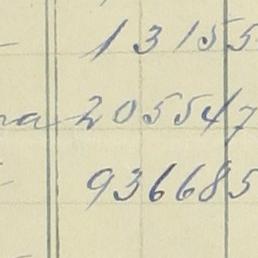 13155
na 205547
936685